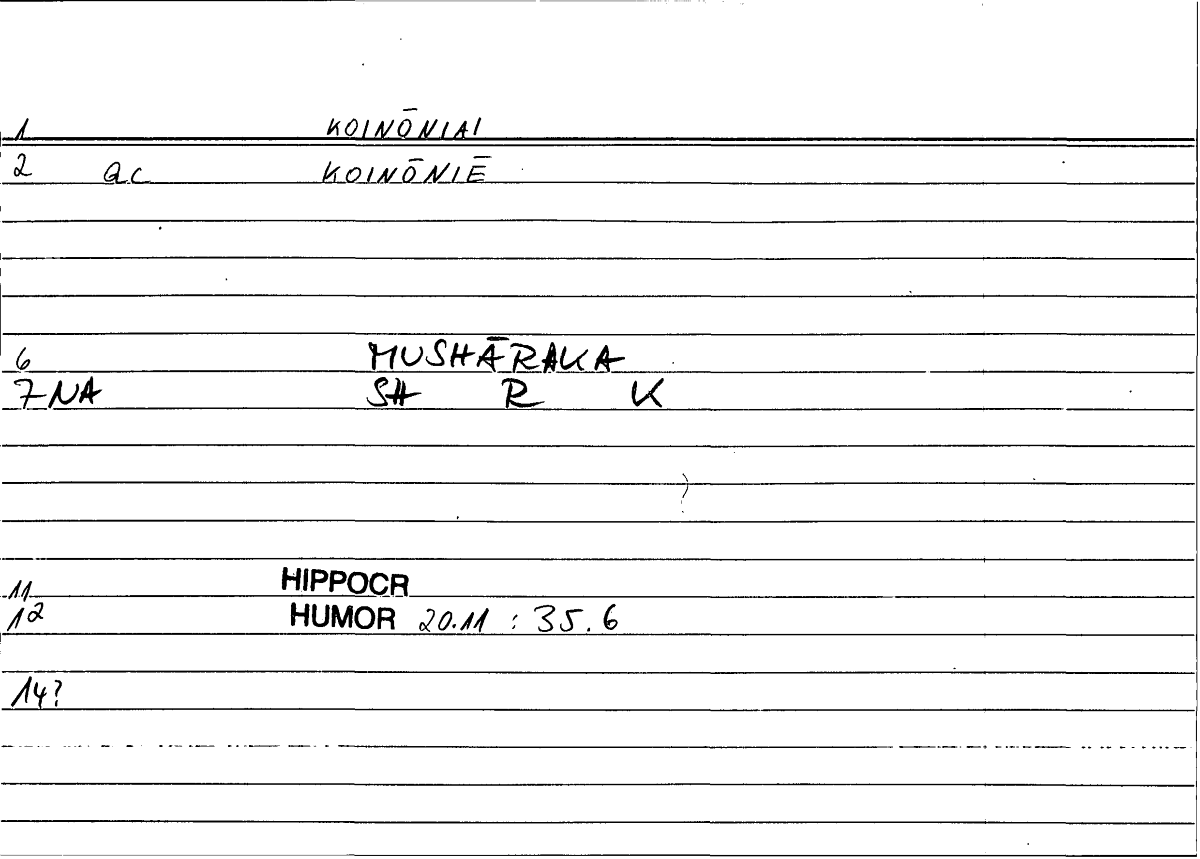 1 KOINŌNIAI
2 ac KOINŌNIĒ
6 MUSHĀRAKA
7 NA SH R K
11 HIPPOCR
12 HUMOR 20.11 : 35.6
14?